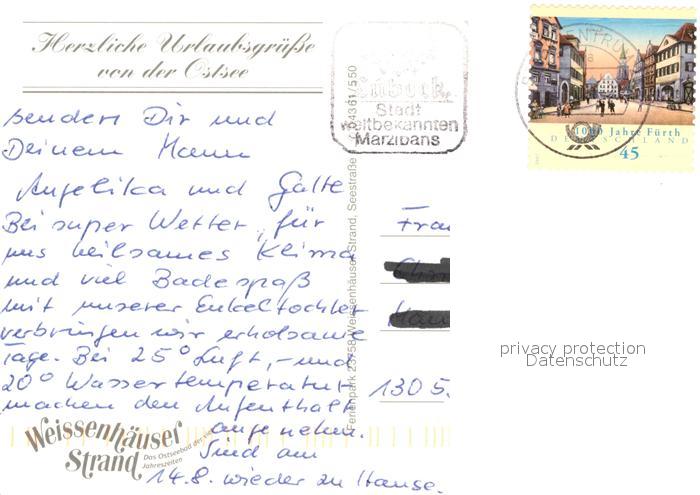 Herzliche Urlaubsgrüße
von der Ostsee
senden Dir und
Deinem Mann
Angelika und Gatte
Bei super Wetter, für
uns heilsames Klima
und viel Badespaß
mit unserer Enkeltochter
verbringen wir erholsame
Tage. Bei 25° Luft,- und
20° Wassertemperatur
machen den Aufenthalt
angenehm.
Sind am
14.8. wieder zu Hause.
Weissenhäuser
Strand
Das Ostseebad der vier
Jahreszeiten
Ferienpark 23758 Weissenhäuser Strand, Seestraße
04361/550
Lübeck.
Stadt
weltbekannten
Marzipans
1000 Jahre Fürth
DEUTSCHLAND
45
Frau
1305
privacy protection
Datenschutz